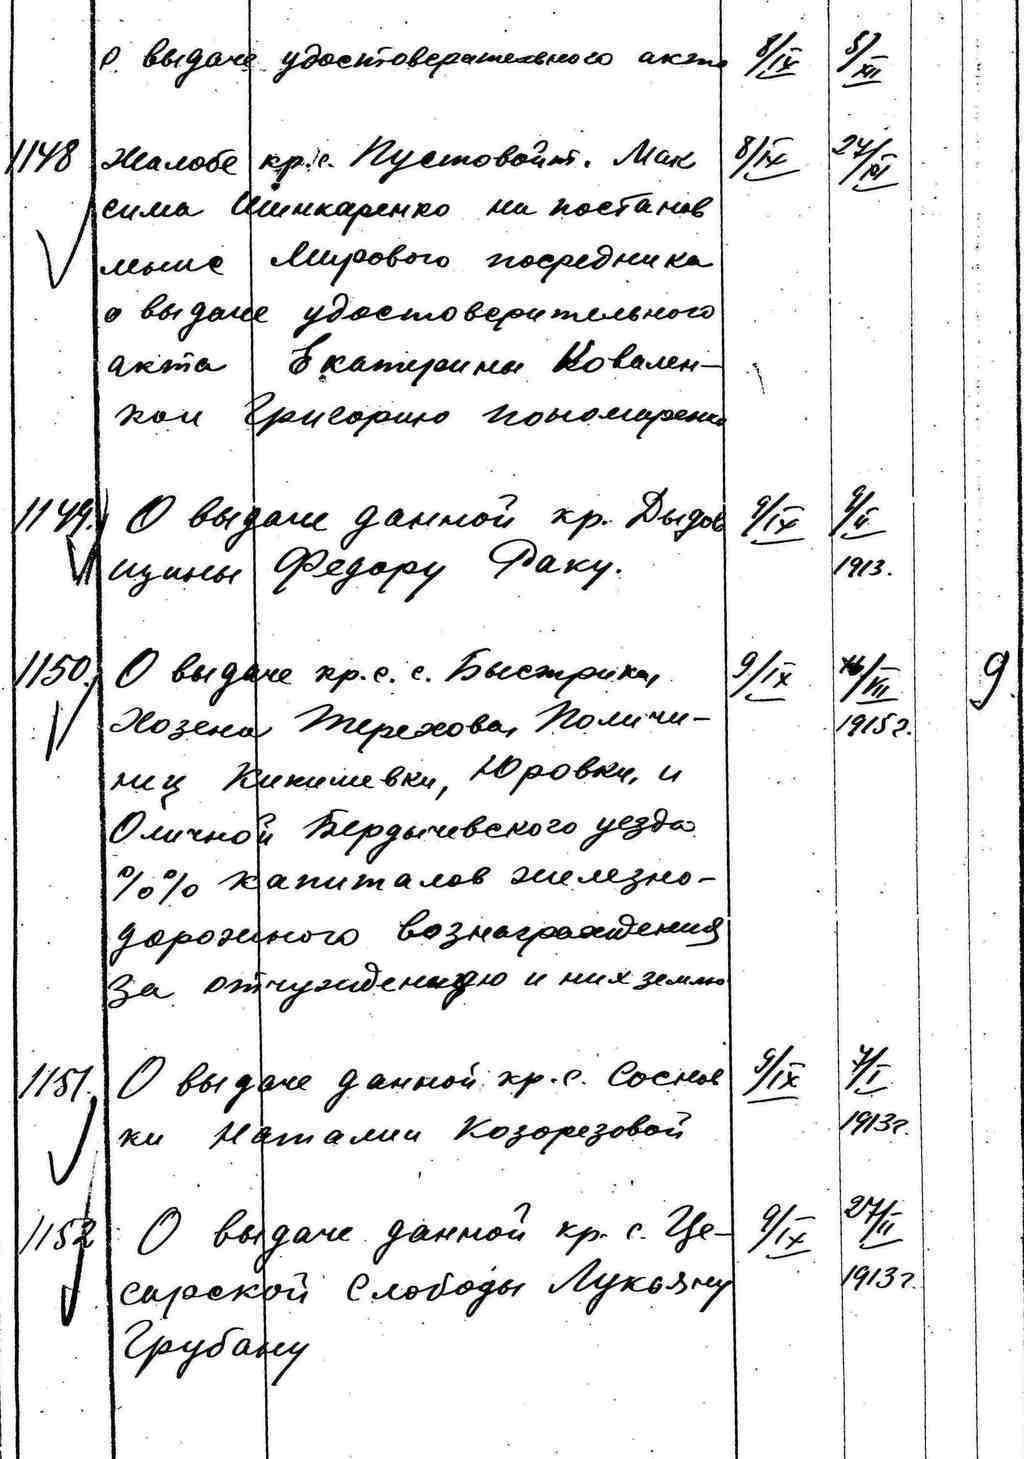 о выдаче удостоверительного акта 8/IX 5/XII
1148 Жалобе кр. с. Пустовойт. Мак
сима Шинкаренко на постанов
ление Мирового посредника
о выдаче удостоверительного
акта Екатерины Ковален-
кои Григорию Пономаренко
8/IX 24/XI
1149. О выдаче данной кр. Дыдов
щины Федору Раку.
9/IX 9/II
1913.
1150. О выдаче кр. с. с. Быстрика,
Хозена Терехова, Поличи-
нец Кикишевки, Юровки, и
Оличной Бердычевского уезда
%% капиталов железно-
дорожного вознаграждения
за отчужденную и них землю
9/IX /VII
1915 г. 9.
1151. О выдаче данной кр. с. Соснов
ки Наталии Козорезовой
9/IX 7/I
1913 г.
1152 О выдаче данной кр. с. Це-
сарской Слободы Лукьяну
Грубану
9/IX 27/II
1913 г.